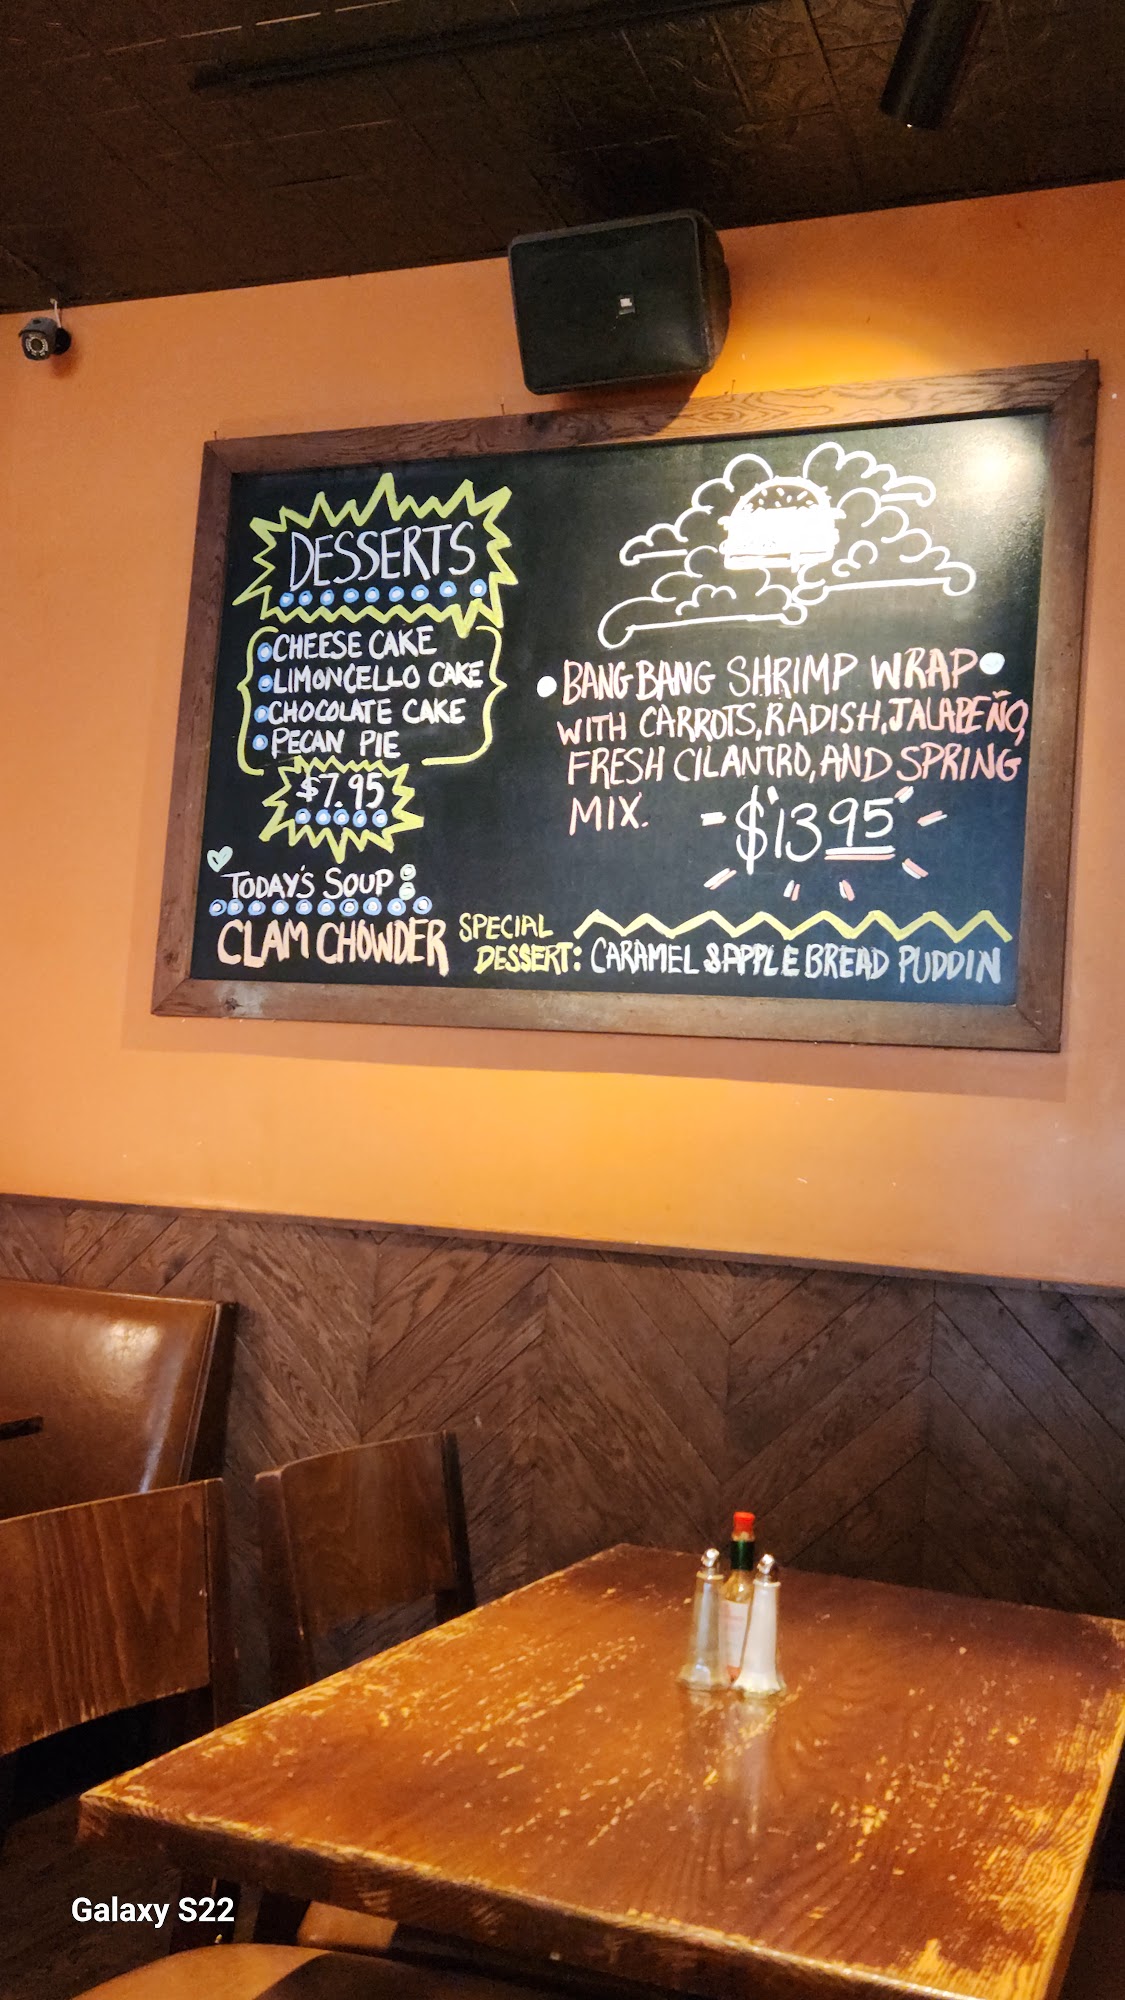 DESSERTS
CHEESE CAKE
LIMONCELLO CAKE
CHOCOLATE CAKE
PECAN PIE
$7.95
TODAY'S SOUP:
CLAM CHOWDER
BANG BANG SHRIMP WRAP
WITH CARROTS, RADISH, JALAPEÑO,
FRESH CILANTRO, AND SPRING
MIX.
$13.95
SPECIAL
DESSERT: CARAMEL & APPLE BREAD PUDDIN
Galaxy S22